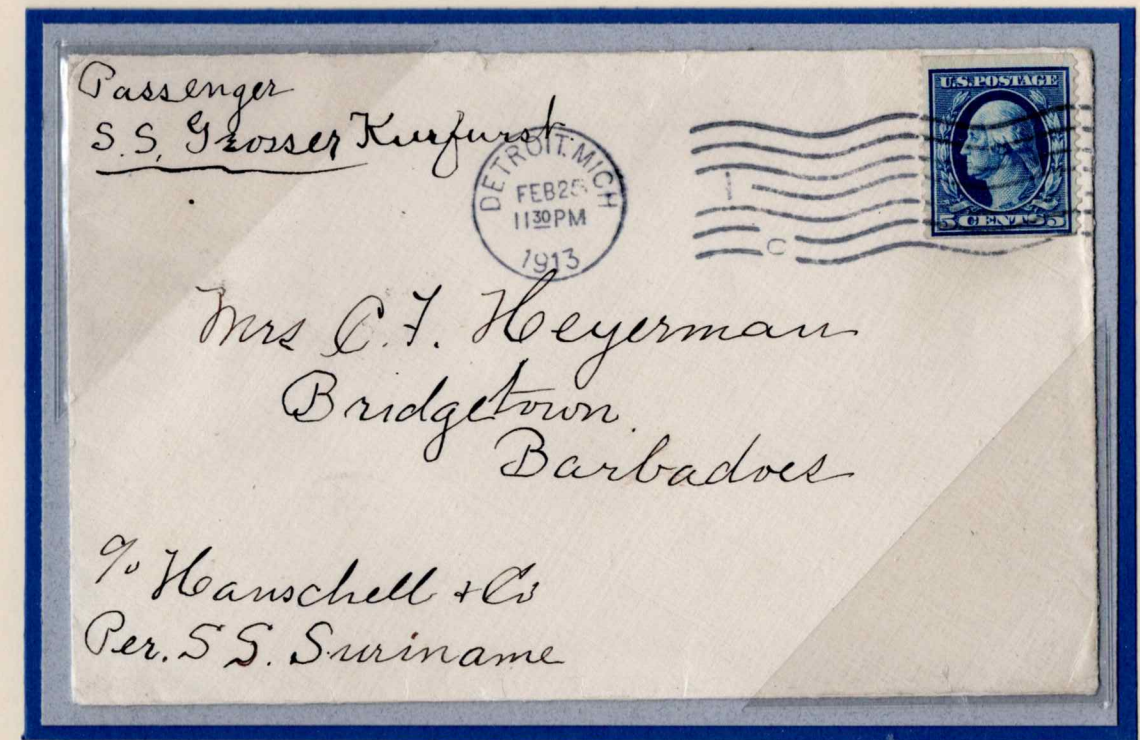 Passenger
S.S. Grosser Kurfurst
DETROIT, MICH
FEB 25
11 30 PM
1913
1
C
U.S. POSTAGE
5 CENTS 5
Mrs C. F. Heyerman
Bridgetown
Barbadoes
c/o Hanschell & Co
Per. S S. Suriname